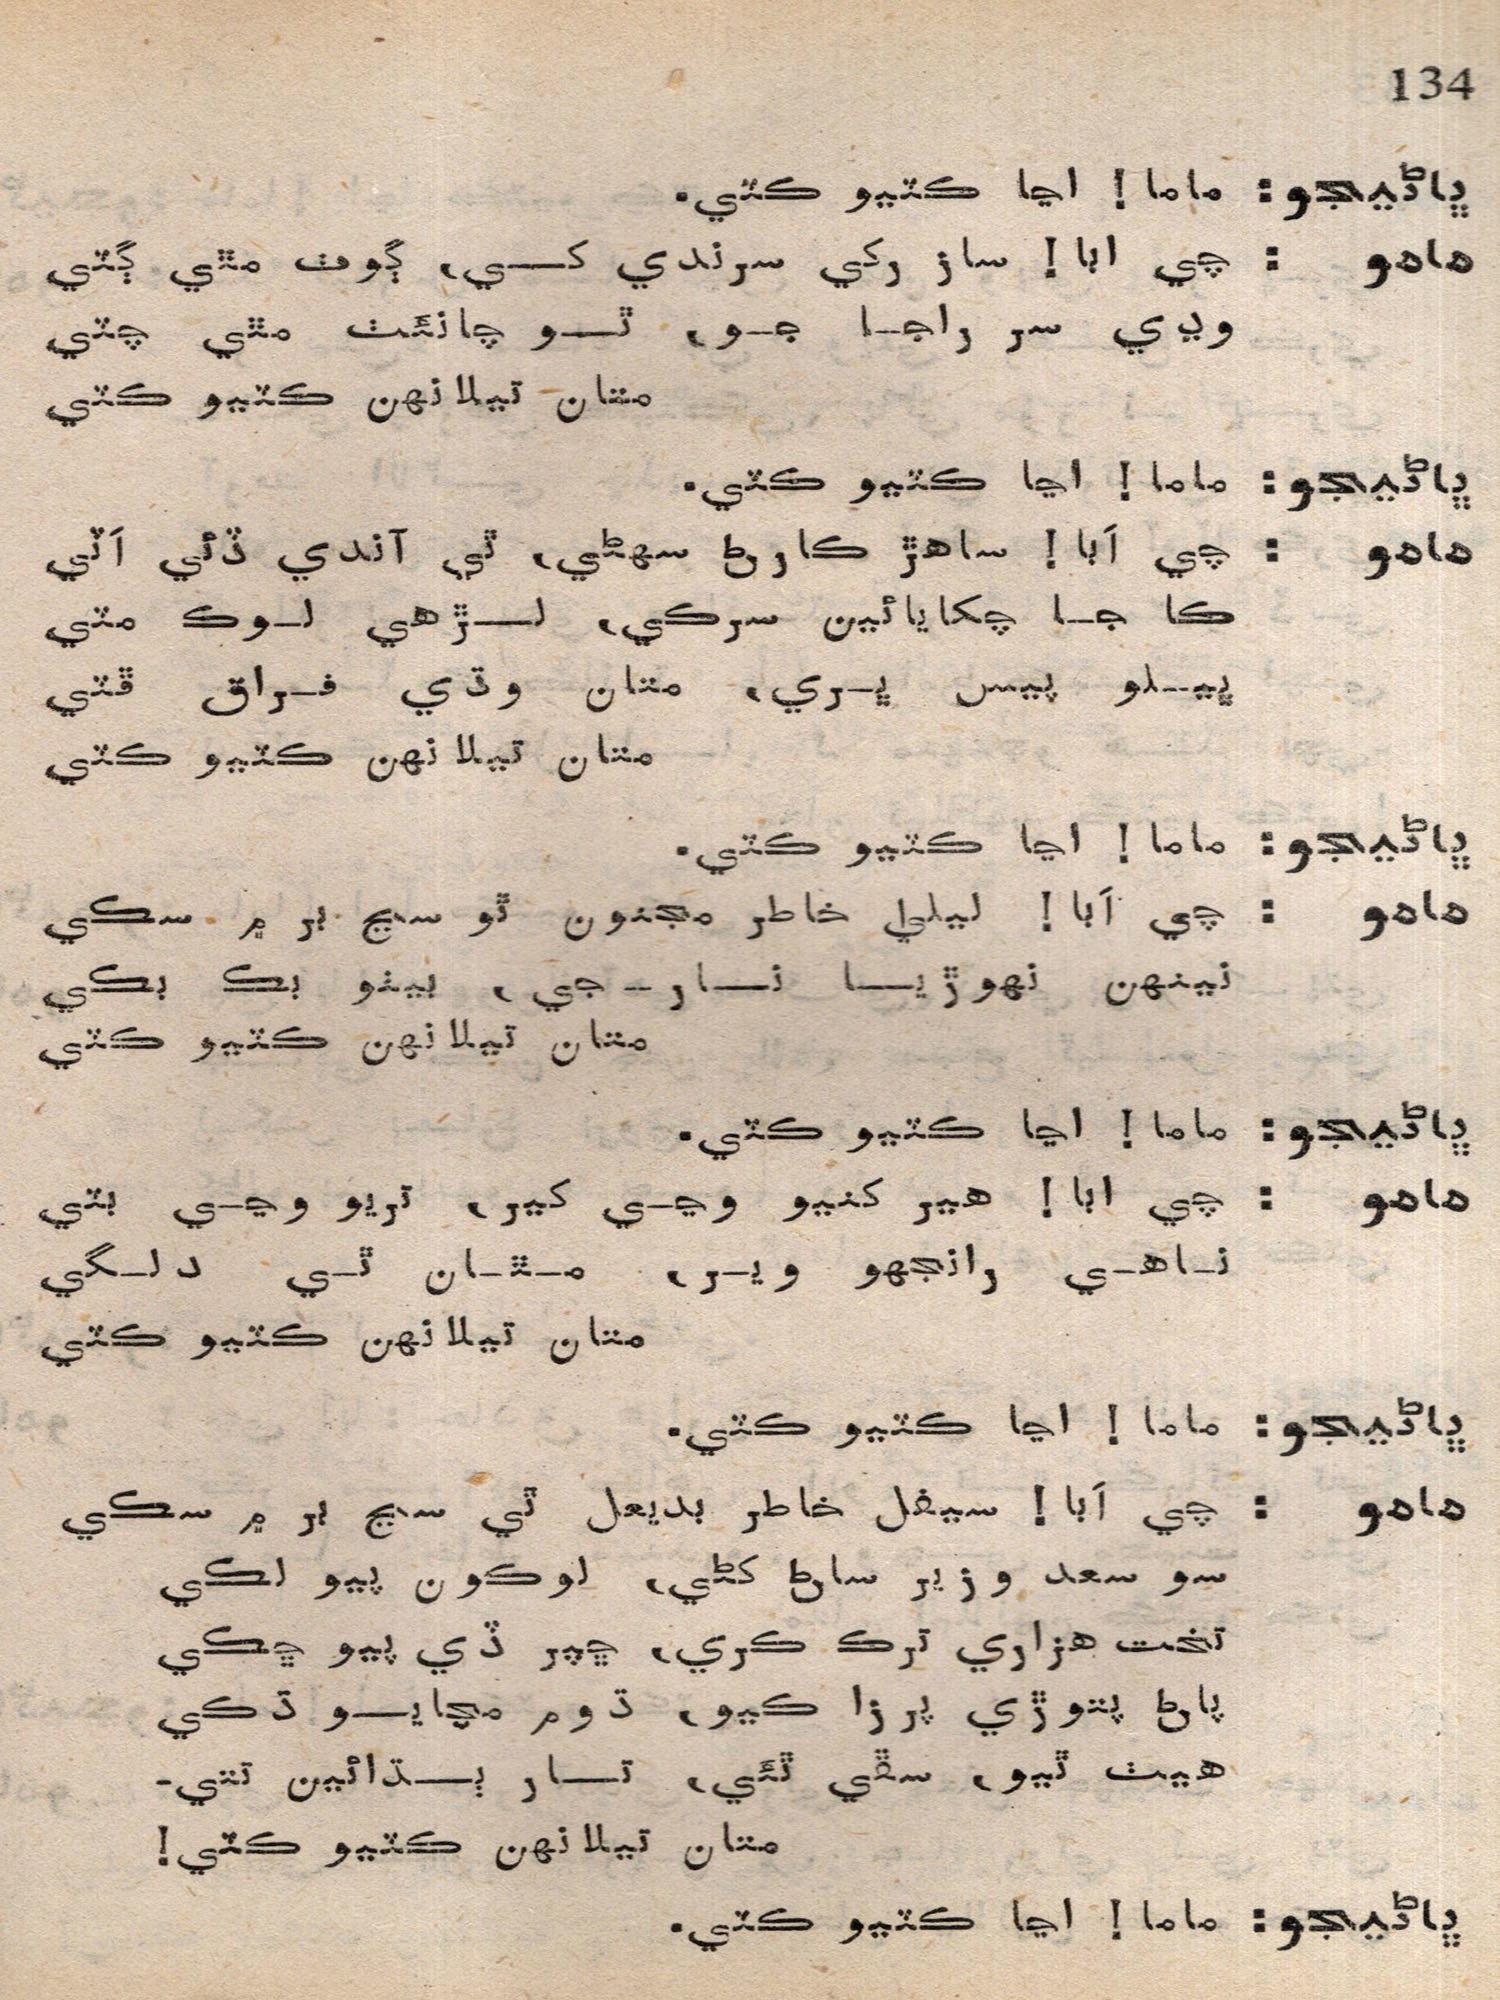 134
ڀاڻيڄو: ماما! اڃا ڪٿيو ڪٿي.
مامو : چي ابا! ساز رکي سرندي کي، ڳوٺ مٿي ڳٽي
وڍي سر راجا جو، ٿو چانئٺ مٿي چٽي
متان تيلانهن ڪٿيو ڪٿي
ڀاڻيڄو: ماما! اڃا ڪٿيو ڪٿي.
مامو : چي اَبا! ساهڙ ڪارڻ سهڻي، ٿي آندي ڏئي اَٽي
ڪا جا چکايائين سرڪي، لڙهي لوڪ مٽي
ٻيلو پيس ڀري، متان وڌي فراق ڦٽي
متان تيلانهن ڪٿيو ڪٿي
ڀاڻيڄو: ماما! اڃا ڪٿيو ڪٿي.
مامو : چي اَبا! ليليٰ خاطر مجنون ٿو سڃ بر ۾ سڪي
نينهن نهوڙيا نار-جي، بيٺو بڪ بڪي
متان تيلانهن ڪٿيو ڪٿي
ڀاڻيڄو: ماما! اڃا ڪٿيو ڪٿي.
مامو : چي ابا! هير کنيو وڃي کير، تريو وڃي بٽي
ناهي رانجهو وير، متان ٿي دلگي
متان تيلانهن ڪٿيو ڪٿي
ڀاڻيڄو: ماما! اڃا ڪٿيو ڪٿي.
مامو : چي اَبا! سيفل خاطر بديعل ٿي سڃ بر ۾ سڪي
سو سعد وزير ساڻ کڻي، لوڪون پيو لڪي
تخت هزاري ترڪ ڪري، چپر ڏي پيو چڪي
پاڻ پتوڙي پرزا ڪيو، ڌوم مچايو ڌڪي
هيٺ ٿيو، سڦي ٿئي، تار ٻڌائين تتي-
متان تيلانهن ڪٿيو ڪٿي!
ڀاڻيڄو: ماما! اڃا ڪٿيو ڪٿي.